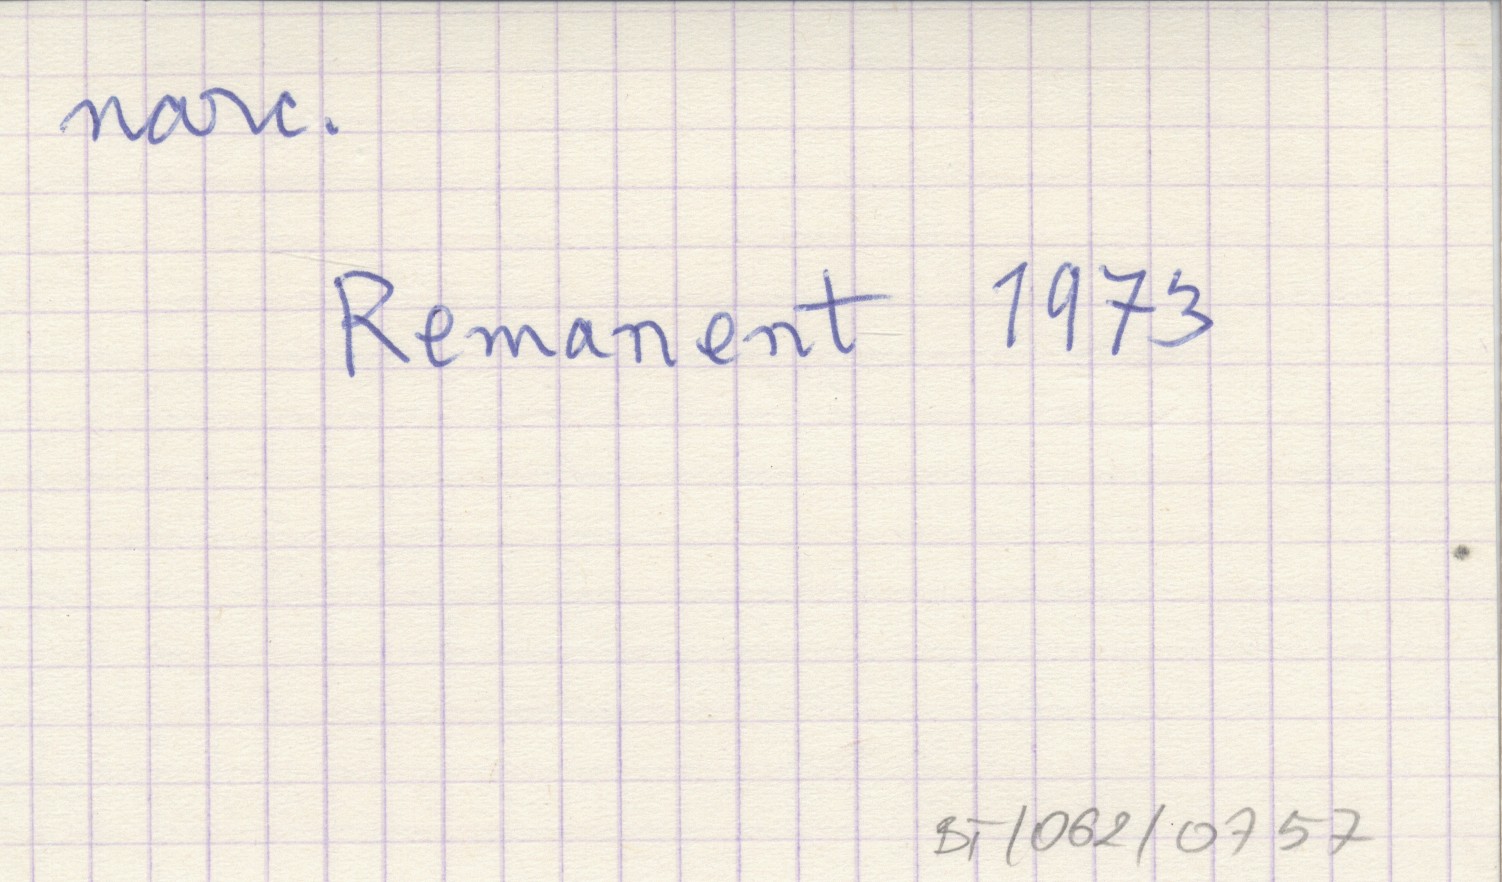 narc.
Remanent 1973
BT/062/0757